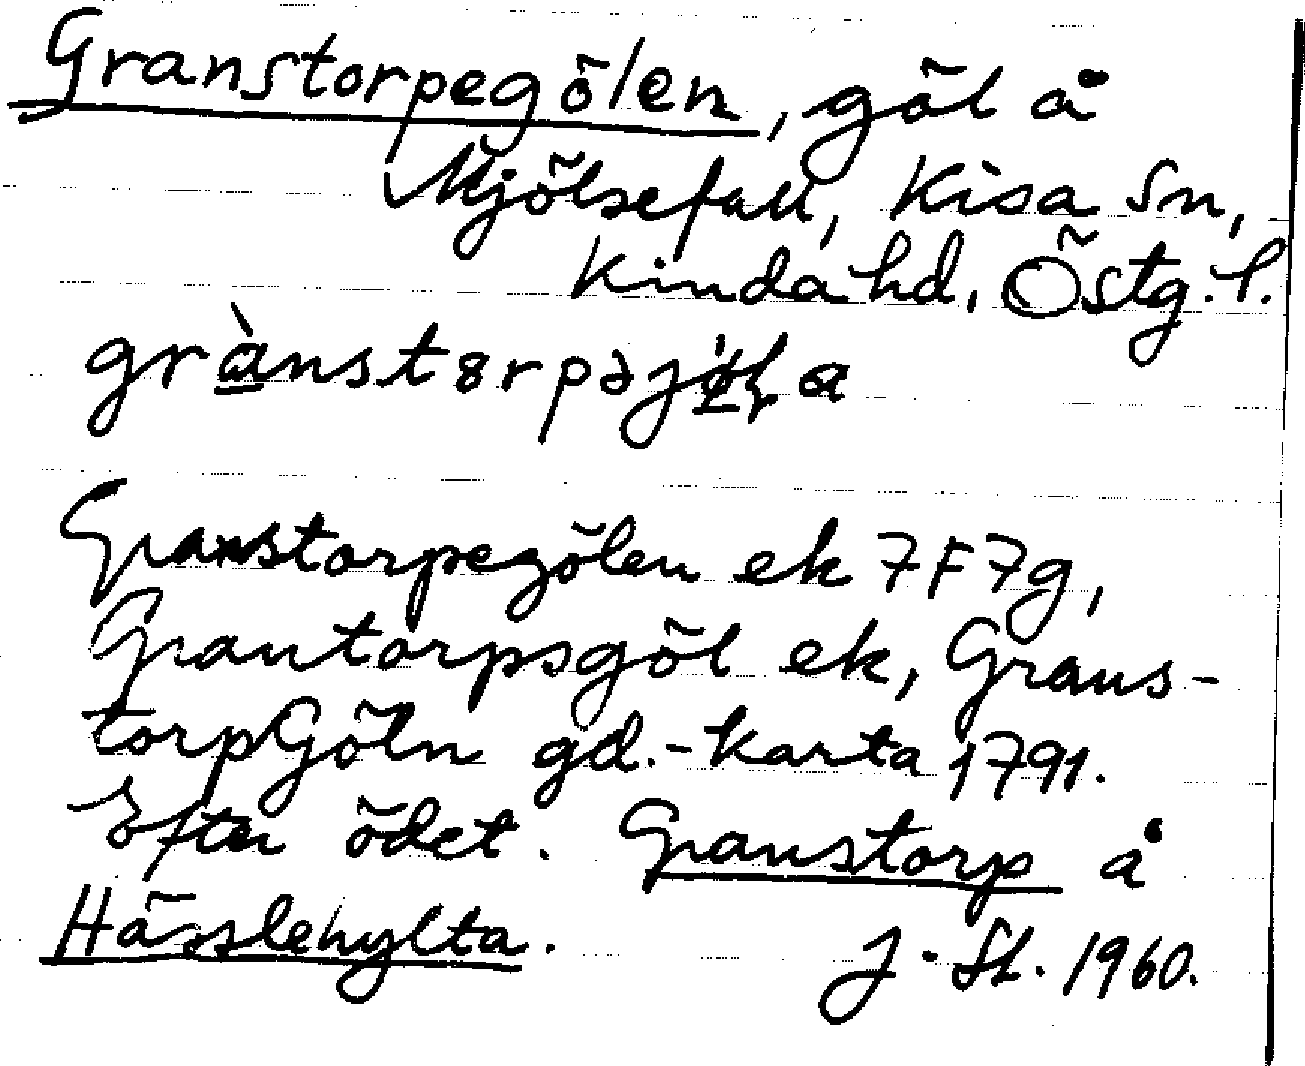 Granstorpegölen, göl å
Mjölsefall, Kisa sn,
Kinda hd, Östg. l.
Granstorpegölen ek 7F7g,
Grantorpsgöl ek, Grans-
torpGöln gd.-karta 1791.
Efter ödet. Granstorp å
Hässlehylta. J. St. 1960.